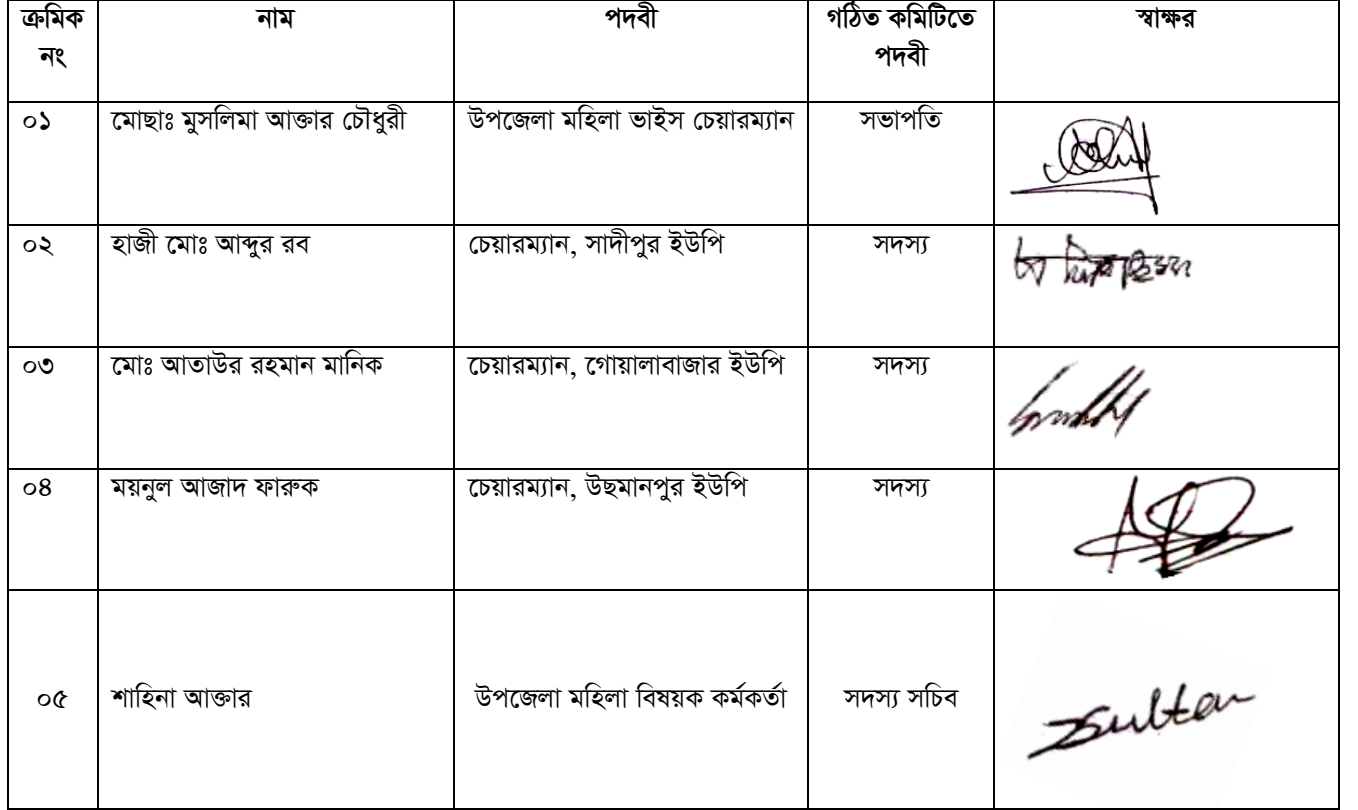 ক্রমিক নং | নাম | পদবী | গঠিত কমিটিতে পদবী | স্বাক্ষর
০১ | মোছাঃ মুসলিমা আক্তার চৌধুরী | উপজেলা মহিলা ভাইস চেয়ারম্যান | সভাপতি
০২ | হাজী মোঃ আব্দুর রব | চেয়ারম্যান, সাদীপুর ইউপি | সদস্য
০৩ | মোঃ আতাউর রহমান মানিক | চেয়ারম্যান, গোয়ালাবাজার ইউপি | সদস্য
০৪ | ময়নুল আজাদ ফারুক | চেয়ারম্যান, উছমানপুর ইউপি | সদস্য
০৫ | শাহিনা আক্তার | উপজেলা মহিলা বিষয়ক কর্মকর্তা | সদস্য সচিব